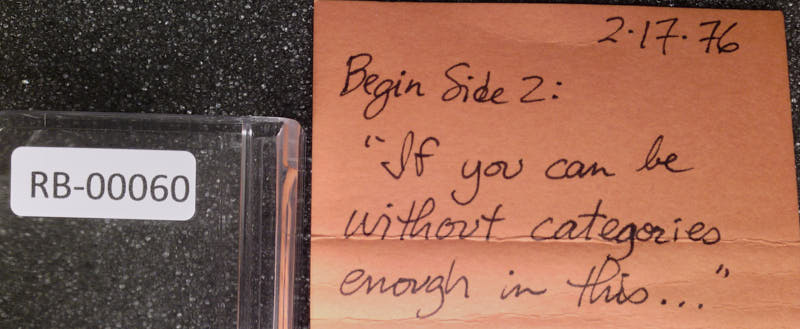 2·17·76
Begin Side 2:
"If you can be
without categories
enough in this..."
RB-00060